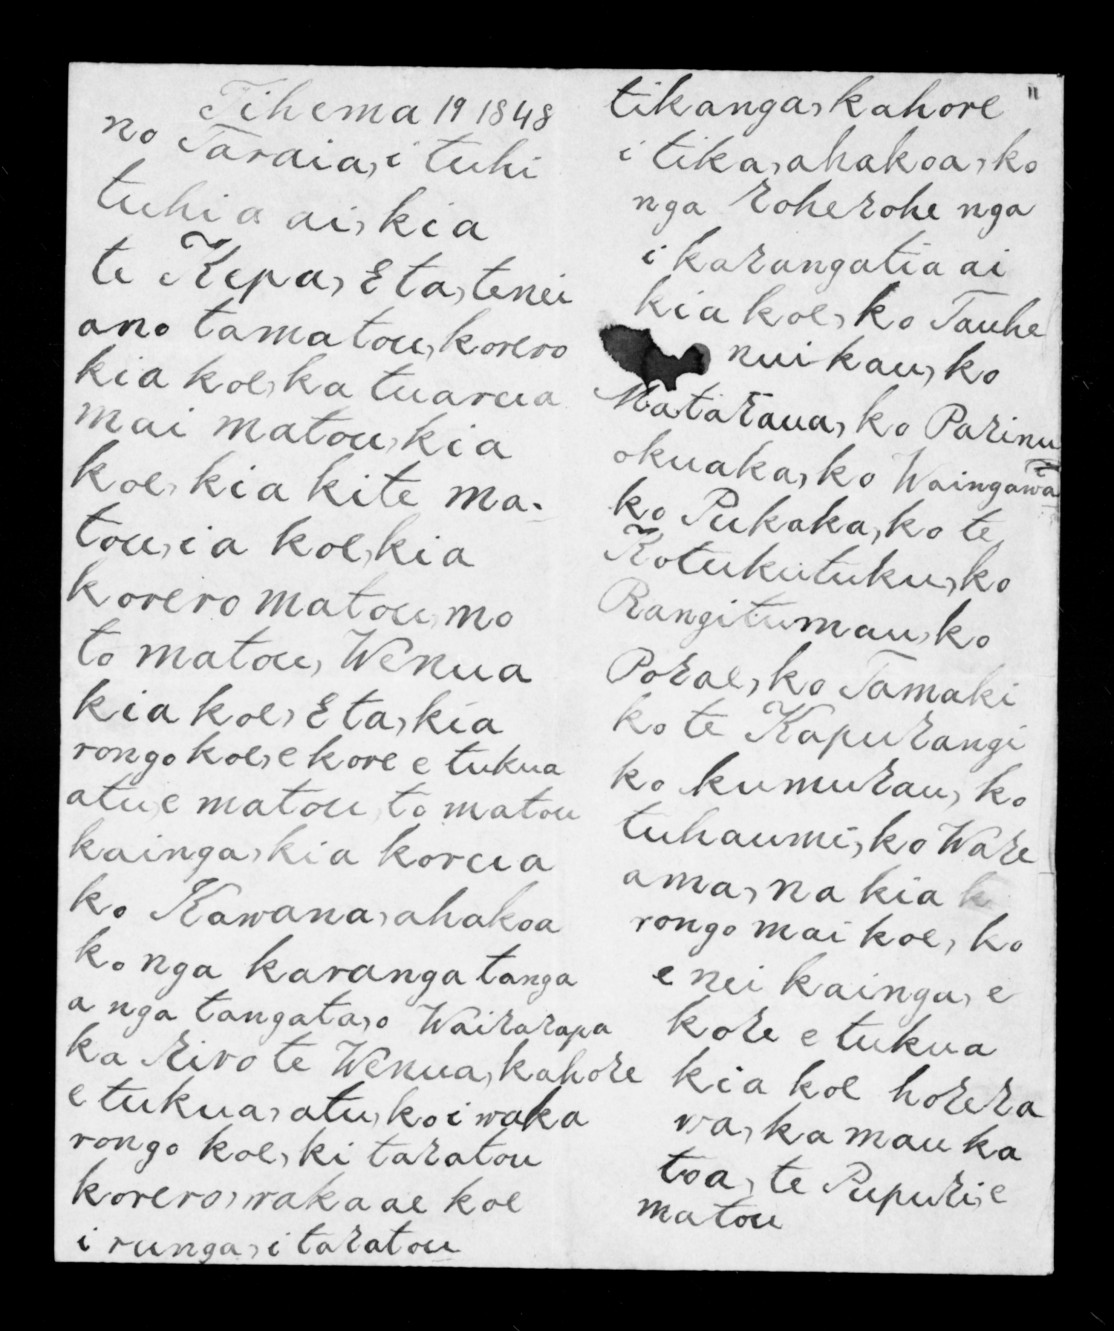 Tihema 19 1848
no Taraia, i tuhi
tuhia ai, kia
te Kepa, E ta, tenei
ano tamatou, korero
kia koe, ka tuarua
mai matou, kia
koe, kia kite ma-
tou, i a koe, kia
korero matou, mo
to matou, Wenua
kia koe, E ta, kia
rongo koe, e kore e tukua
atu, e matou, to matou
kainga, kia korua
ko Kawana, ahakoa
ko nga karanga tanga
a nga tangata, o Wairarapa
ka riro te Wenua, kahore
e tukua, atu, ko i waka
rongo koe, ki taratou
korero, waka ae koe
i runga, i taratou
tikanga, kahore
i tika, ahakoa, ko
nga roherohe nga
i karangatia ai
kia koe, ko Tauhe
nui kau, ko
Mataraua, ko Parinu
okuaka, ko Waingawa
ko Pukaka, ko te
Kotukutuku, ko
Rangitumau, ko
Porae, ko Tamaki
ko te Kapurangi
ko kumurau, ko
tuhaumi, ko Ware
ama, na kia k
rongo mai koe, ko
e nei kainga, e
kore e tukua
kia koe horera
wa, ka mau ka
toa, te Pupuri, e
matou